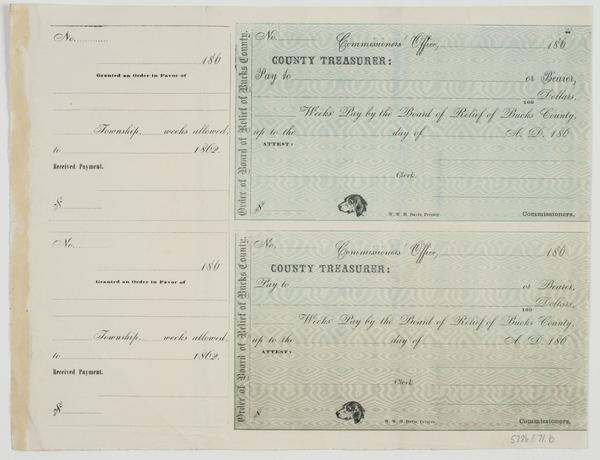 No.
186
Granted an Order in Favor of
Township, weeks allowed,
to 1862.
Received Payment.
$
Order of Board of Relief of Bucks County.
No.
Commissioners' Office, 186
COUNTY TREASURER:
Pay to or Bearer,
100 Dollars,
Weeks' Pay by the Board of Relief of Bucks County,
up to the day of A. D. 186
ATTEST:
Clerk.
$
W. W. H. Davis, Printer.
Commissioners.
No.
186
Granted an Order in Favor of
Township, weeks allowed,
to 1862.
Received Payment.
$
Order of Board of Relief of Bucks County.
No.
Commissioners' Office, 186
COUNTY TREASURER:
Pay to or Bearer,
100 Dollars,
Weeks' Pay by the Board of Relief of Bucks County,
up to the day of A. D. 186
ATTEST:
Clerk
$
W. W. H. Davis, Printer.
Commissioners.